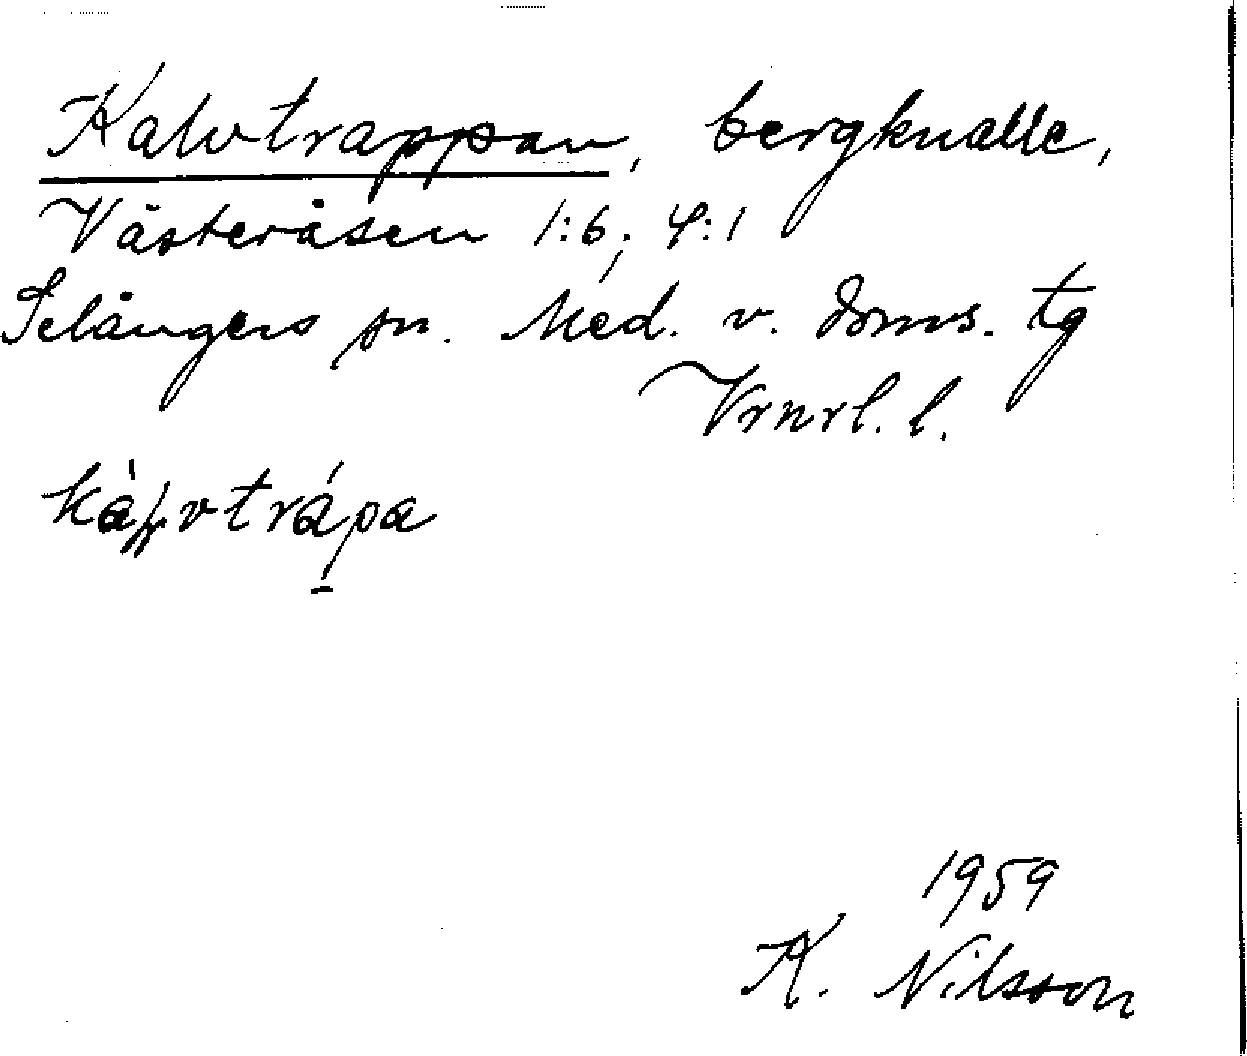 Kalvtrappan, bergknalle,
Västeråsen 1:6; 4:1
Selångers sn. Med. v. doms. tg
Vrnrl. l.
1959
K. Nilsson